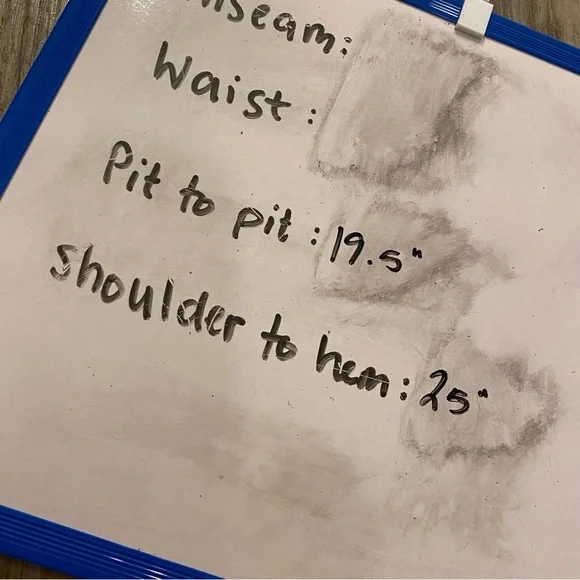 Inseam:
Waist:
Pit to pit: 19.5"
Shoulder to hem: 25"